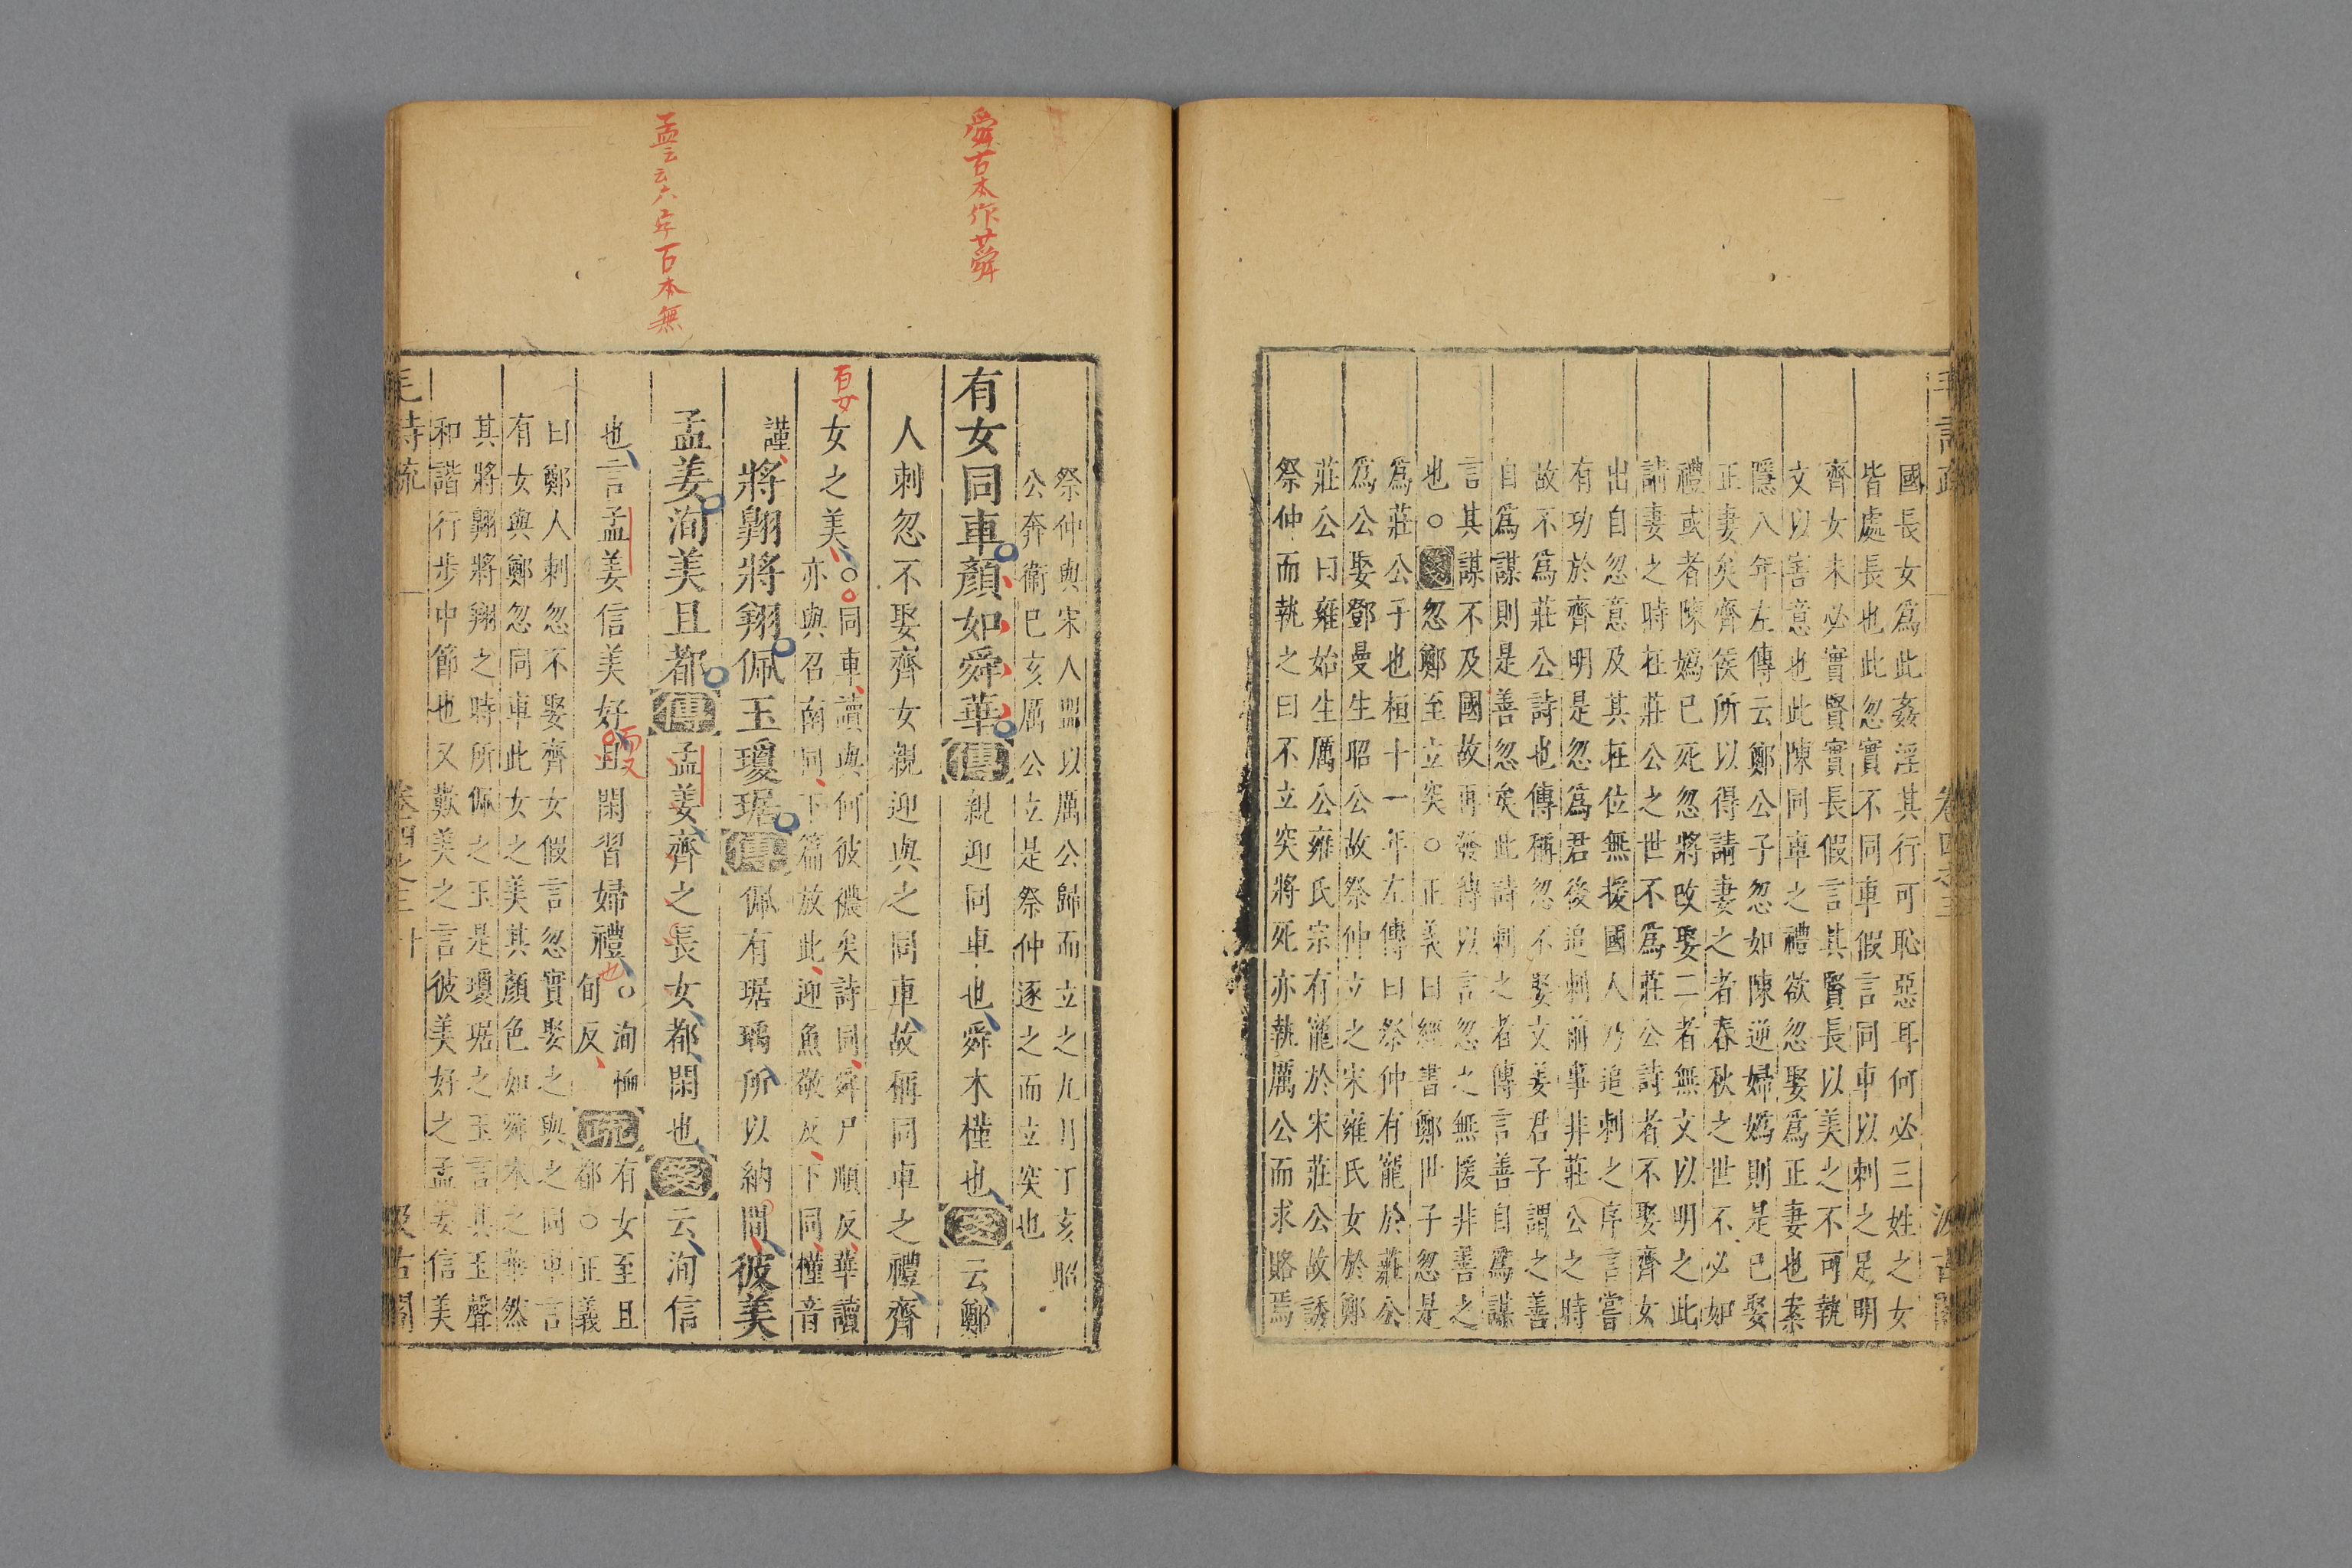 國長女爲此姦淫其行可恥惡耳何必三姓之女
皆處長也此忽實不同車假言同車以刺之足明
齊女未必實賢實長假言其賢長以美之不可執
文以害意也此陳同車之禮欲忽娶爲正妻也案
隱八年左傳云鄭公子忽如陳逆婦嬀則是已娶
正妻矣齊侯所以得請妻之者春秋之世不必如
禮或者陳嬀已死忽將改娶二者無文以明之此
請妻之時在莊公之世不爲莊公詩者不娶齊女
出自忽意及其在位無援國人乃追刺之序言嘗
有功於齊明是忽爲君後追刺前事非莊公之時
故不爲莊公詩也傳稱忽不娶文姜君子謂之善
自爲謀則是善忽矣此詩刺之者傳言善自爲謀
言其謀不及國故再發傳以言忽之無援非善之
也○箋忽鄭至立突○正義曰經書鄭世子忽是
爲莊公子也桓十一年左傳曰祭仲有寵於莊公
爲公娶鄧曼生昭公故祭仲立之宋雍氏女於鄭
莊公曰雍姞生厲公雍氏宗有寵於宋莊公故誘
祭仲而執之曰不立突將死亦執厲公而求賂焉
祭仲與宋人盟以厲公歸而立之九月丁亥昭
公奔衛已亥厲公立是祭仲逐之而立突也
舜古本作蕣
有女同車顏如舜華傳親迎同車也舜木槿也箋云鄭
人刺忽不娶齊女親迎與之同車故稱同車之禮齊
女之美○同車讀與何彼襛矣詩同舜尸順反華讀
亦與召南同下篇放此迎魚敬反下同槿音
謹將翱將翔佩玉瓊琚傳佩有琚瑀所以納閒彼美
孟云云六字古本無
孟姜洵美且都傳孟姜齊之長女都閑也箋云洵信
也言孟姜信美好且閑習婦禮○洵恤
旬反
而又
也
疏有女至且
都○正義
曰鄭人刺忽不娶齊女假言忽實娶之與之同車言
有女與鄭忽同車此女之美其顏色如舜木之華然
其將翱將翔之時所佩之玉是瓊琚之玉言其玉聲
和諧行步中節也又歎美之言彼美好之孟姜信美
毛詩疏 卷四之三 汲古閣